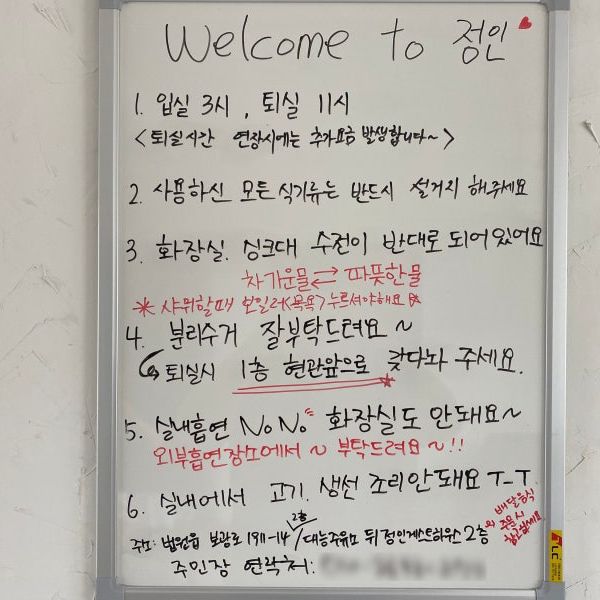 Welcome to 정인
1. 입실 3시, 퇴실 11시
<퇴실시간 연장시에는 추가요금 발생합니다~>
2. 사용하신 모든 식기류는 반드시 설거지 해주세요
3. 화장실. 싱크대 수전이 반대로 되어있어요
차가운물 ⇄ 따뜻한물
* 샤워할때 보일러<목욕>누르셔야해요 *
4. 분리수거 잘부탁드려요~
↪ 퇴실시 1층 현관앞으로 갖다놔 주세요.
5. 실내흡연 NoNo 화장실도 안돼요~
외부흡연장소에서~ 부탁드려요~!!
6. 실내에서 고기. 생선 조리안돼요 T_T
주소: 법원읍 보광로 1911-14/대능주유소 뒤 정인게스트하우스 2층
2층
배달음식
주문시
참고하세요
주인장 연락처:
LC